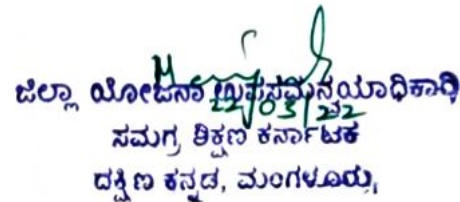 ಜಿಲ್ಲಾ ಯೋಜನಾ ಉಪಸಮನ್ವಯಾಧಿಕಾರಿ
22/03/22
ಸಮಗ್ರ ಶಿಕ್ಷಣ ಕರ್ನಾಟಕ
ದಕ್ಷಿಣ ಕನ್ನಡ, ಮಂಗಳೂರು,